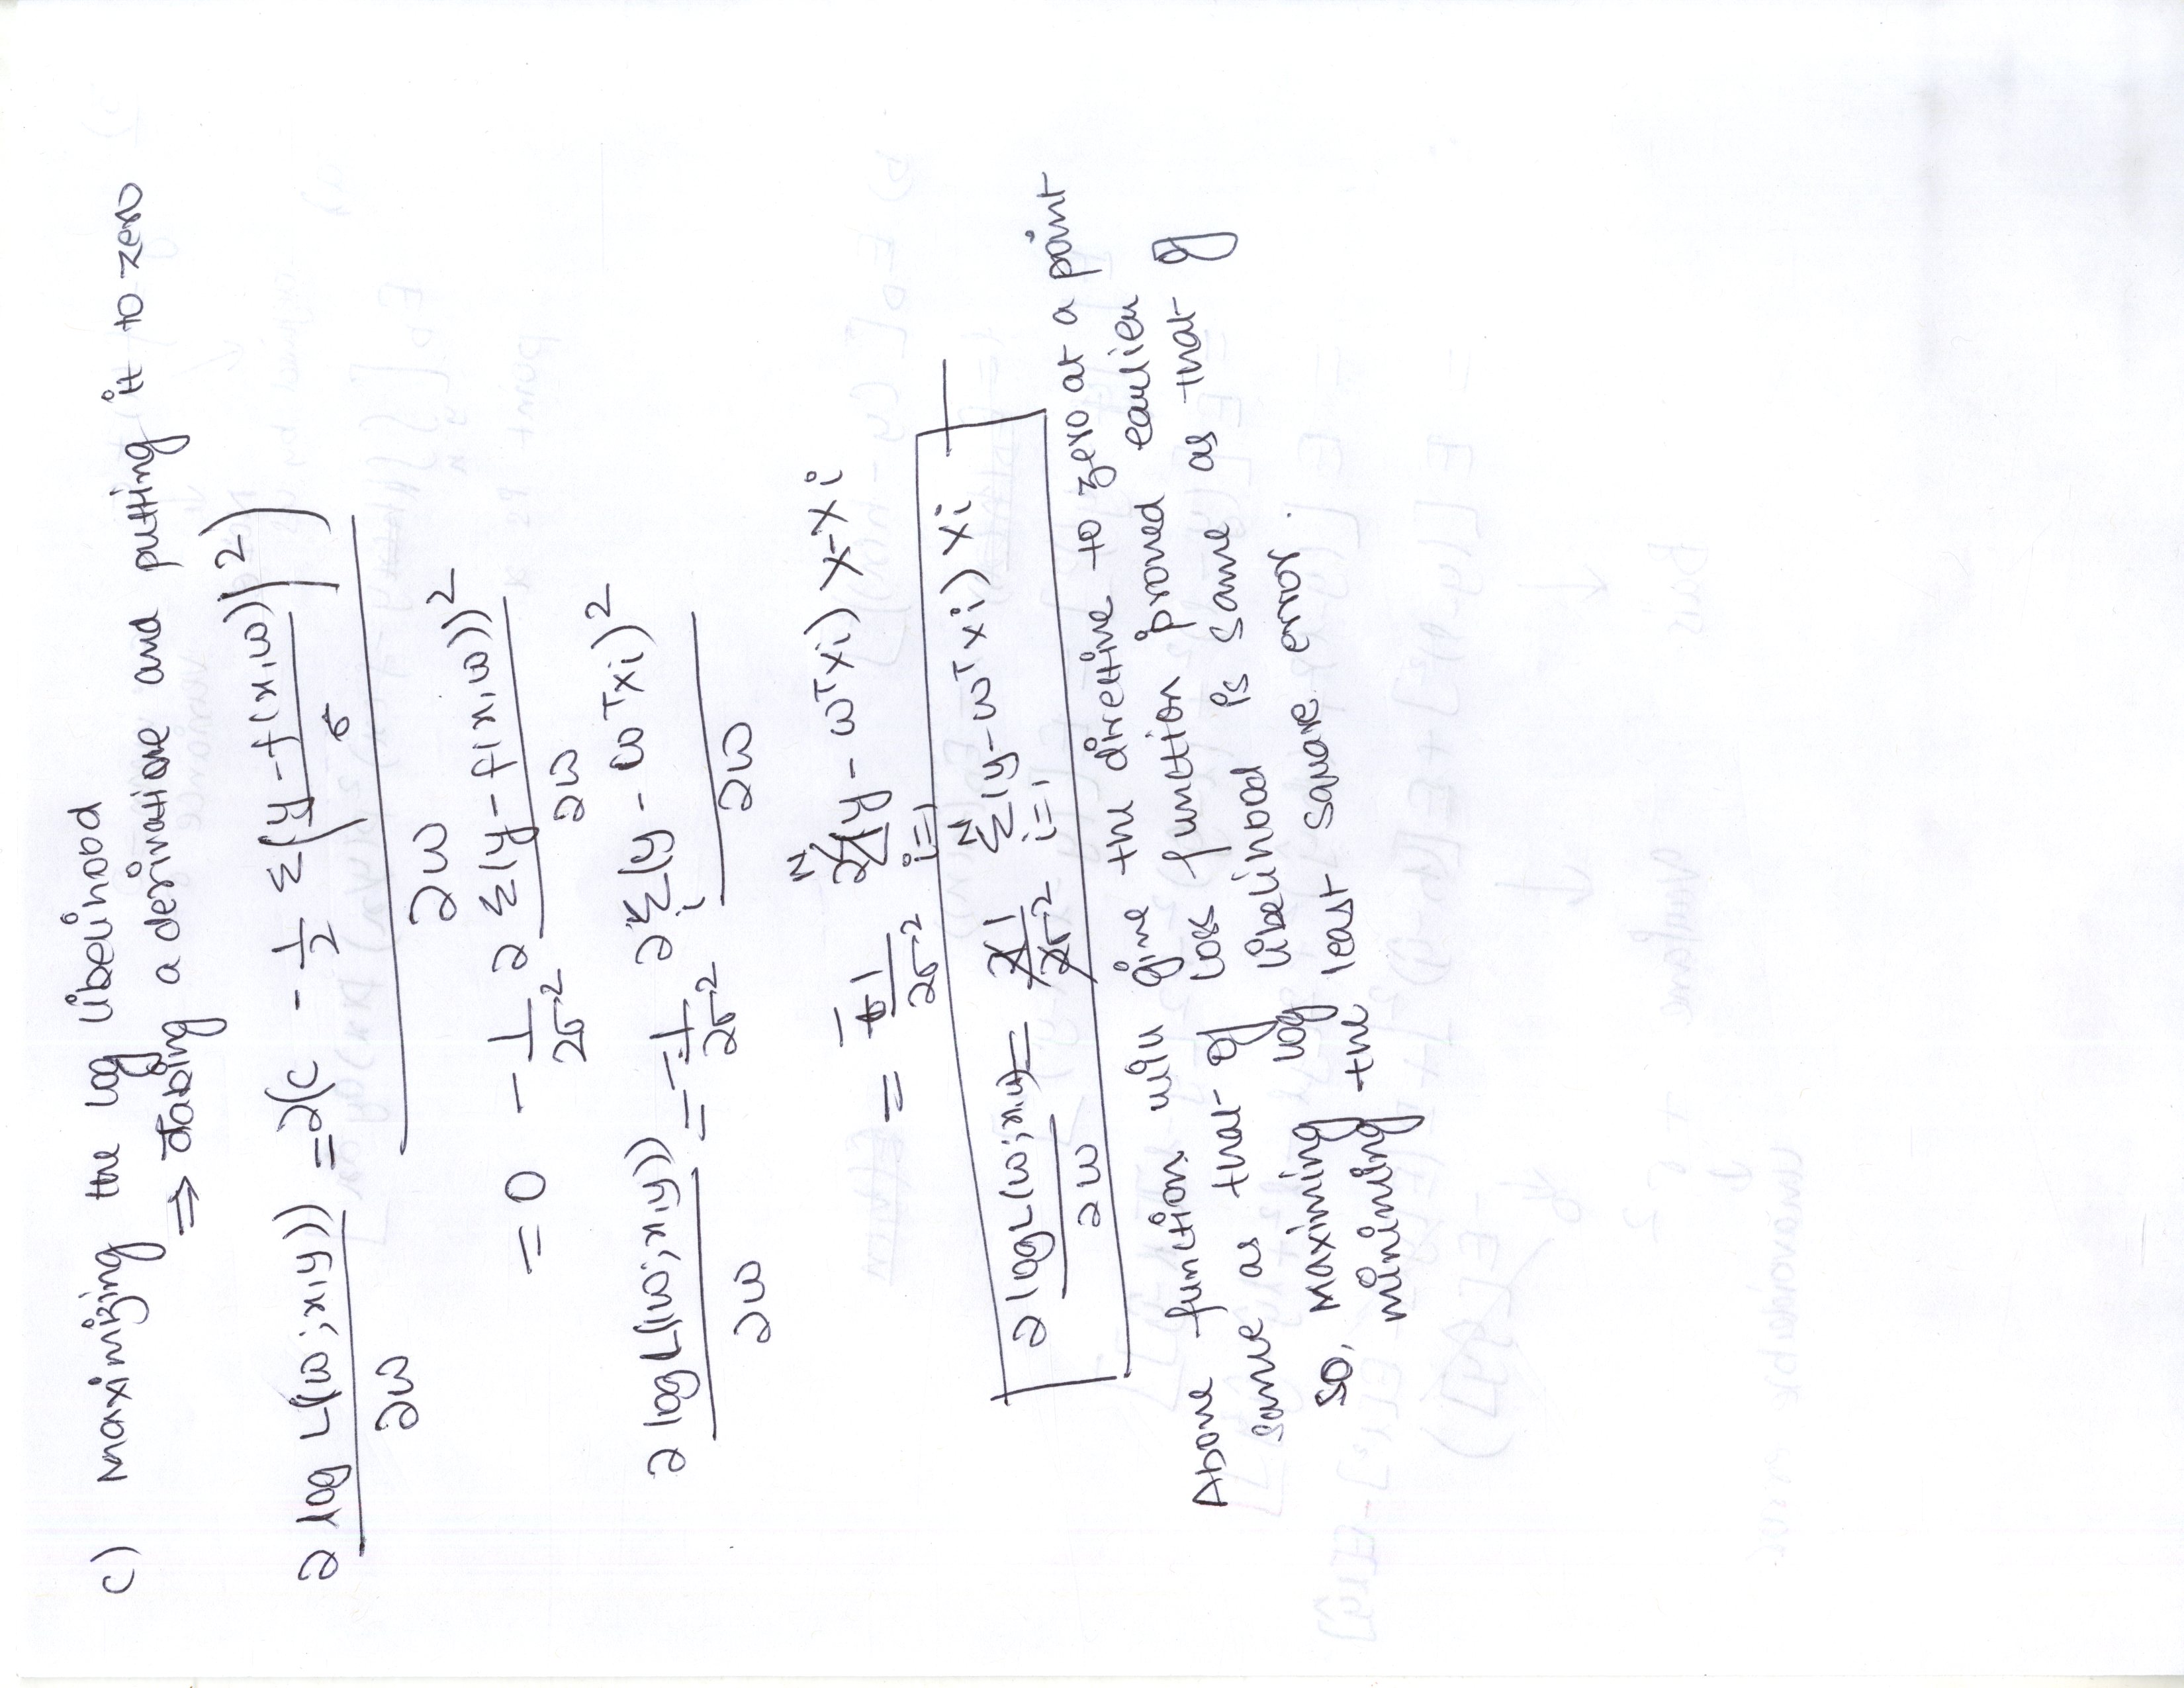 c) Maximizing the log likelihood
⇒ Taking a derivative and putting it to zero
∂ log L(w; x,y)) / ∂w = ∂(c - 1/2 Σ(y - f(x,w)/σ)²) / ∂w
= 0 - 1/2σ² ∂ Σ(y - f(x,w))² / ∂w
∂ log L((w; x,y)) / ∂w = -1/2σ² ∂ Σ_i (y - wᵀxi)² / ∂w
= -1/2σ² 2 Σ_{i=1}^N (y - wᵀxi) x -xi
∂ log L(w; x,y) / ∂w = Σ_{i=1}^N (y - wᵀxi) xi
Above function will give the directive to zero at a point
same as that of loss function proved earlier
so, Maximing log likelihood is same as that of
minimining the least square error.